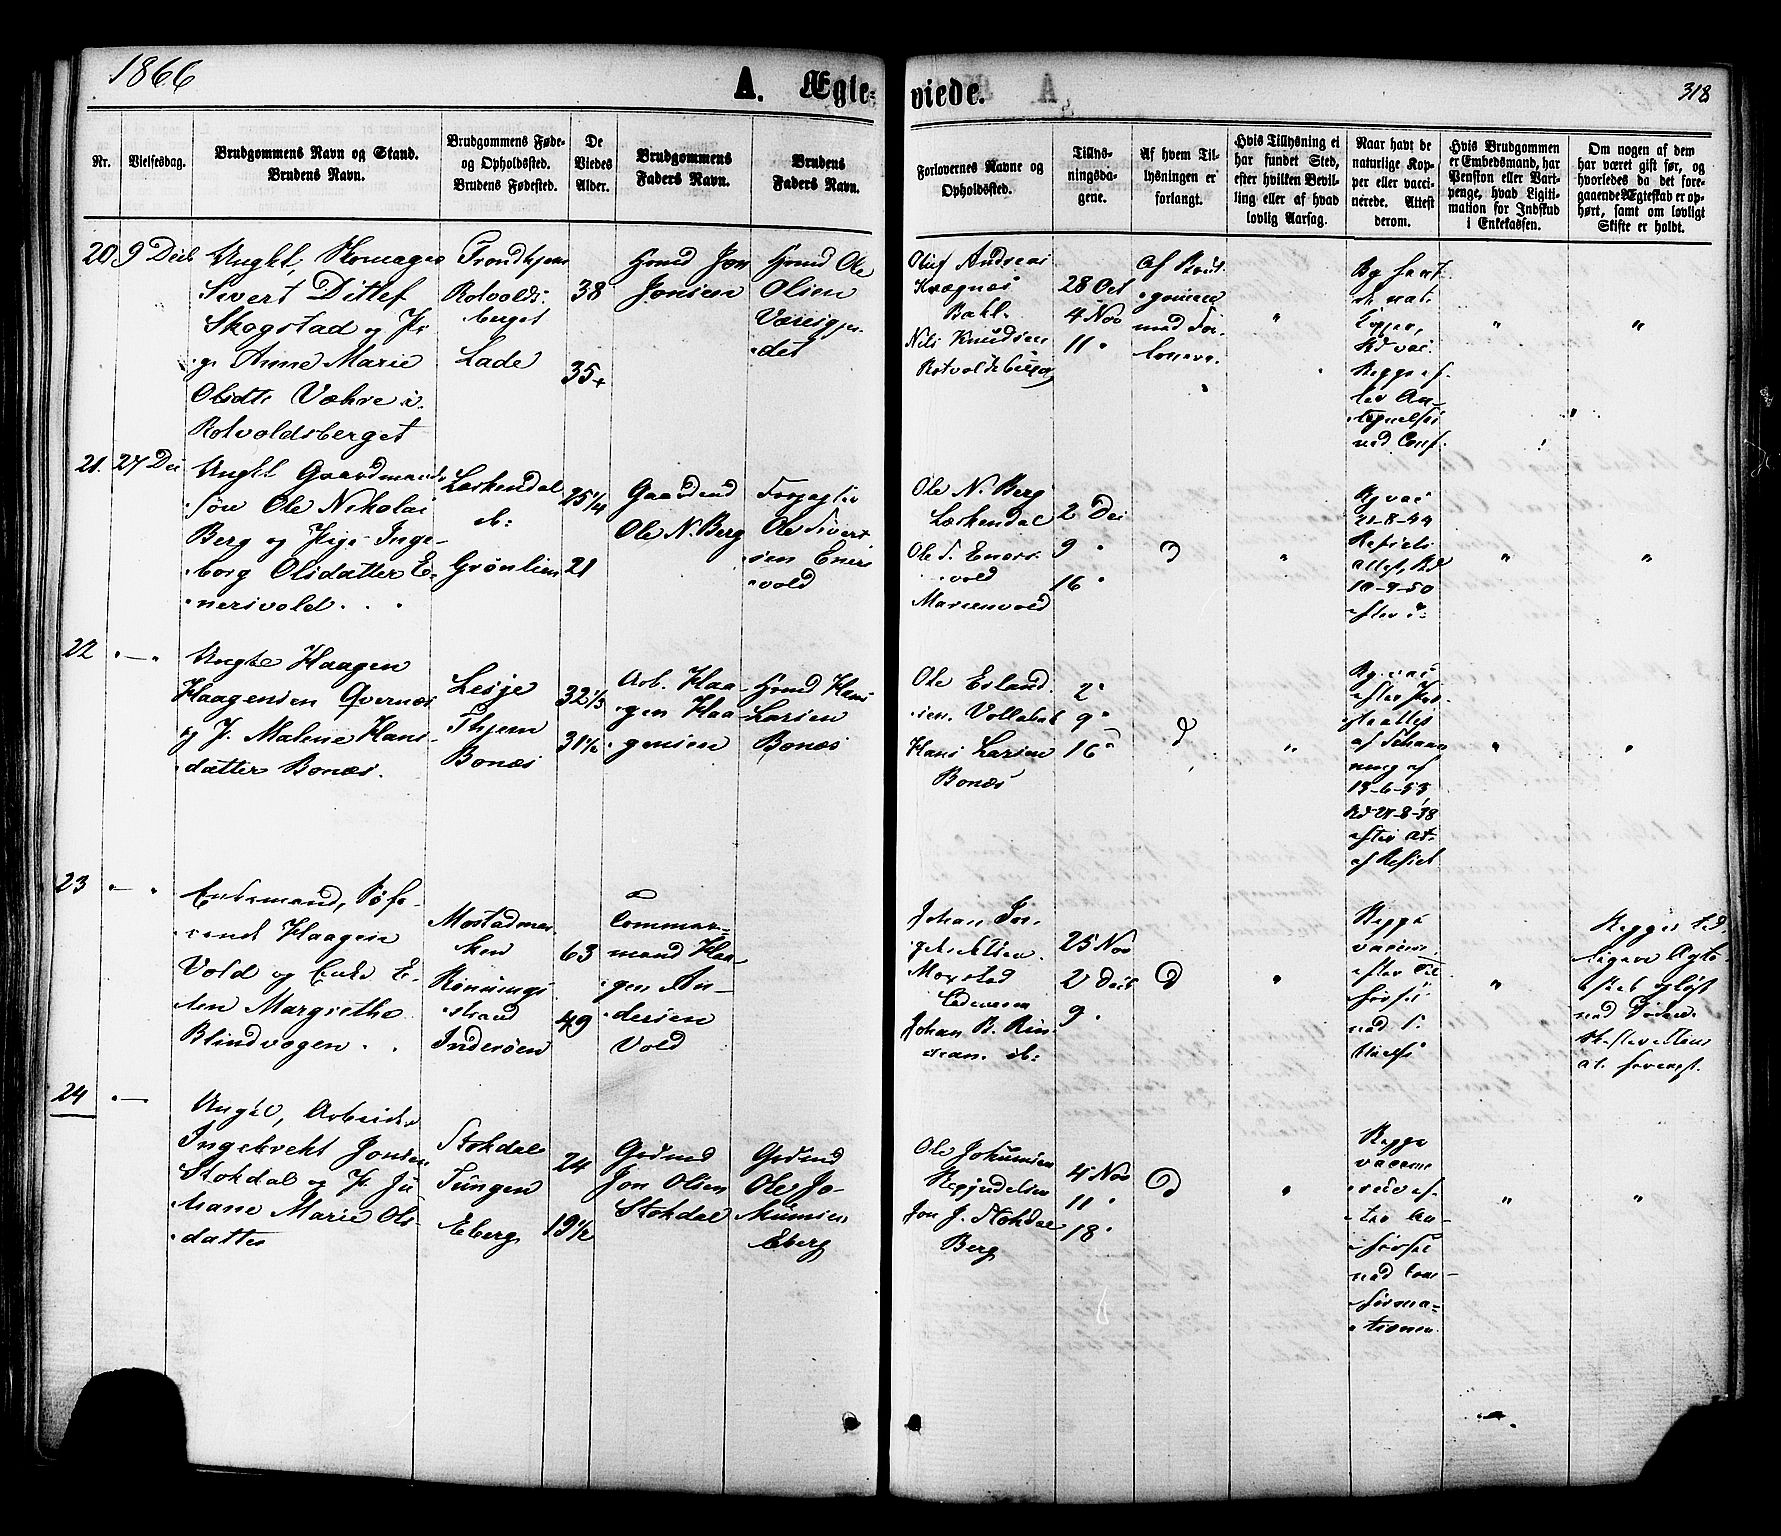 1866
A. Ægte-
viede.
318
Nr.
Vielsesdag.
Brudgommens Navn og Stand.
Brudens Navn.
Brudgommens Føde-
og Opholdssted.
Brudens Fødested.
De
Viedes
Alder.
Brudgommens
Faders Navn.
Brudens
Faders Navn.
Forlovernes Navne og
Opholdssted.
Tillys-
ningsda-
gene.
Af hvem Til-
lysningen er
forlangt.
Hvis Tillysning ei
har fundet Sted,
efter hvilken Bevil-
ling eller af hvad
lovlig Aarsag.
Naar havt de
naturlige Kop-
per eller vacci-
nerede. Attest
derom.
Hvis Brudgommen
er Embedsmand, har
Pension eller Vart-
penge, hvad Ligiti-
mation for Indskud
i Enkekassen.
Om nogen af dem
har været gift før, og
hvorledes da det fore-
gaaende Ægteskab er op-
hørt, samt om lovligt
Skifte er holdt.
20
9 Decb
Ungkl,
Sivert Ditlef
Skogstad og P
g. Anne Marie
Olsdtr Væhre i
Rotvoldsberget
Trondhjem
Rotvolds-
berget
Lade
38
35
Hmd Jon
Jonsen
Hmd Ole
Olsen
Oluf Andreas
Bakl.
Nils Knudsen
28 Oct
4 Nov
11 "
af Brud-
gommen
med For-
lovere.
"
"
"
21.
27 Dec
Ungkl Gaardmands
søn Ole Nikolai
Berg og Pige Inge-
borg Olsdatter E-
nersvold
Leskendal
ib:
Grønlien
25 1/4
21
Gaardmd
Ole N. Berg
Ole Sivert
sen Eners
vold
Ole N. Berg
Leskendal
Ole S. Eners-
vold
Marienvold
2 Dec
9 "
16 "
D
"
Bg vac
21-8-44
attest, Bd
10-9-50
efter d:
"
"
22
"—"
Ungk Haagen
Haagensen Qvernæs
og P. Malene Hans-
datter Bonæs.
Lesje
Thjem
Bonæs
32 1/3
31 1/2
Arb. Haa-
gen Haa-
gensen
Hmd Hans
Larsen
Bonæs
Ole Esland-
sen Vollabak
Hans Larsen
Bonæs
2 "
9 "
16 "
D
"
Bg. vac
efter Præ-
steattest
af
13-6-53
efter At.
"
"
23
"—"
Enkemand,
Haagen
Vold og Enke E-
len Margrethe
Blindvogen
Mostadmar
ken
Rønnings
strand
Inderøen
63
49
mand Haa-
gen An-
dersen
Vold
Johan Jør-
gen Nilsen
Moxstad
Johan B. Rin-
ib:
25 Nov
2 Decb
9 "
D
"
Begge
vaccine
efter
"
Begges tid-
ligere Ægte-
skab opløst
ved Døden
24
"—
Ungkl, Arbeider
Ingebrekt Jonsen
Stokdal og P Ju-
liane Marie Ols-
datter
Stokdal
Tungen
Eberg
24
19 1/2
Grdmd
Jon Olsen
Stokdal
Grdmd
Ole Jo-
kumsen
Eberg
Ole Jokumsen
Jon J. Stokdal
Berg
4 Nov
11 "
18 "
D
"
Begge
vaccine
rede ef-
ter An-
førsel
ved Con-
firma-
tionen
"
"